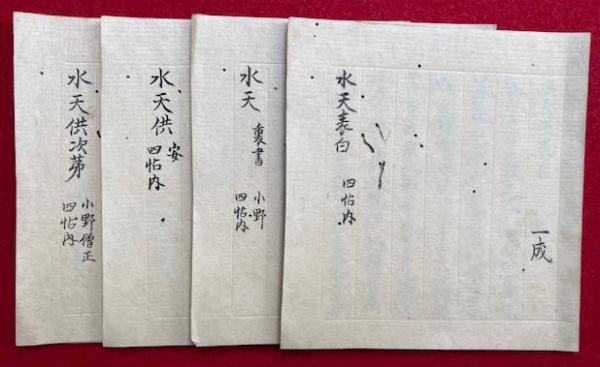 水天表白
四帖内
一成
水天
裏書
小野
四帖内
水天供
安
四帖内
水天供次第
小野僧正
四帖内